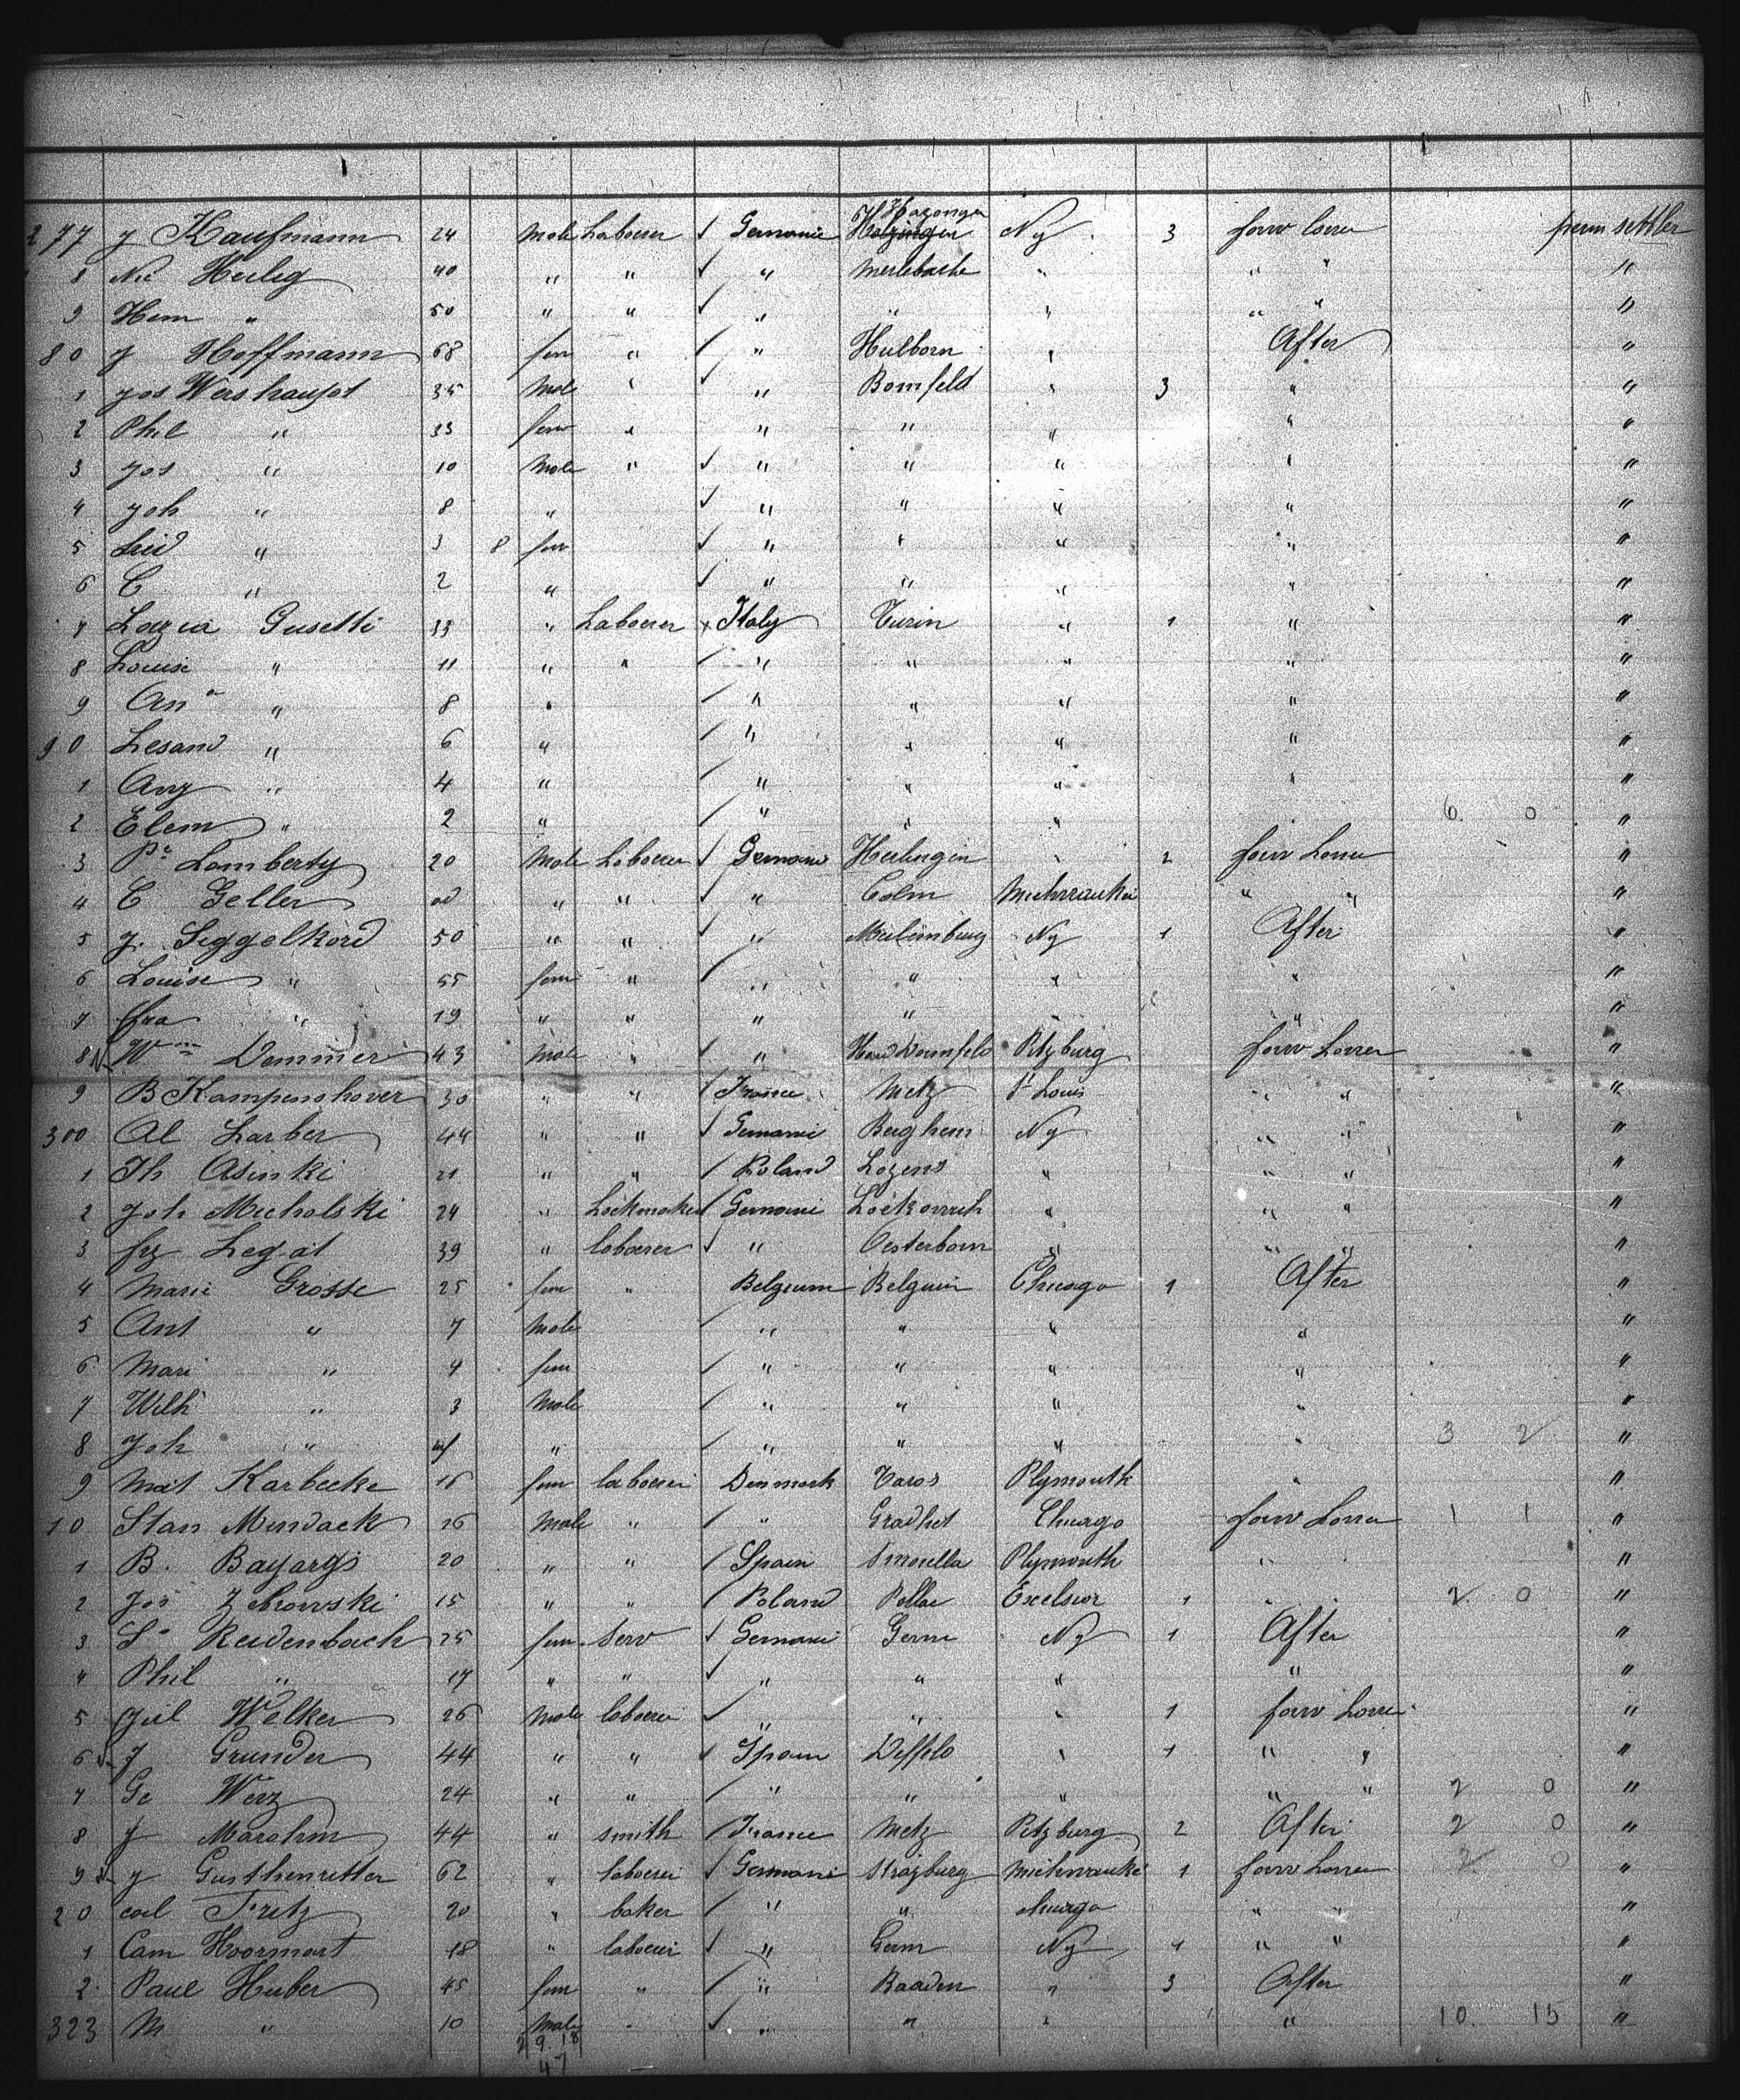 277 J Kaufmann 24 Male Laboerer √ Germanie Hazongen Ny 3 forw lorrer perm settler
8 Nic Heileg 40 " " √ " Merlebache " " " "
9 Hem " 50 " " √ " " " " " "
80 J Hoffmann 68 fem " / " Hulborn " After "
1 Jos Weishaupt 35 Male " √ " Bomfeld " 3 " "
2 Phil " 33 fem " " " " " "
3 Jos " 10 Male " √ " " " " "
4 Joh " 8 " √ " " " " "
5 " 3 8 fem √ " " " " "
6 C " 2 " √ " " " " "
7 Gusetti 33 " Laboerer x Italy Turin " 1 " "
8 Louise " 11 " " / " " " " "
9 An " 8 " / " " " " "
90 Lesand " 6 " / " " " " "
1 Ang " 4 " / " " " " "
2 Elem " 2 " / " " " 6 0 "
3 Pe Lamberty 20 Male Laboerer √ Germanie Heilingen " 2 forw Lorrer "
4 C Geller 20 " " √ " Colm " " "
5 J. Siggelkord 50 " " √ " Ny 1 After "
6 Louise " 55 fem " / " " " " "
7 fra " 19 " " " " " "
8 Wm Demmer 43 Male " / " Pitzburg forw Lorrer "
9 B Kampenshover 30 " " / France Metz St Louis " " "
300 Al Larber 44 " " √ Germanie Berghem Ny " " "
1 Th Asinki 21 " " / Poland Lozens " " " "
2 Joh Micholski 24 " Lockmaker / Germanie " " " "
3 frz Legat 39 " laboerer √ " Oesterborn " " " "
4 Marie Grosse 25 fem " Belgium Belguim Chicago 1 After "
5 Ant " 7 Male / " " " " "
6 Mari " 4 fem / " " " " "
7 Wilh " 3 Male / " " " " "
8 Joh " inf " / " " " " 3 2 "
9 Mat Karbecke 16 fem laboerer Denmark Taros Plymouth " "
10 Stan Mendack 26 Male " / " Gradhet Chicago forw Lorrer 1 1 "
1 B. Bayargs 20 " " / Spain Smoulla Plymouth " "
2 Jos Zebrowski 15 " " / Poland Pollac Excelsior 1 " 2 0 "
3 Reidenbach 25 fem Serv √ Germanie Germ Ny 1 After "
4 Phil " 17 " " √ " " " " "
5 Jul Welker 26 Male laboerer √ " " " 1 forw Lorrer "
6 J Grunder 44 " " √ Spain Deffelo " 1 " " "
7 Ge Werz 24 " " / " " " " " 2 0 "
8 J Marohm 44 " smith / France Metz Pitzburg 2 After 2 0 "
9 J Gusthenritter 62 " laboerer √ Germanie Strazburg 1 forw Lorrer 2 0 "
20 carl Fritz 20 " baker / " " chicago " " "
1 Cam Hoormart 18 " laboerer √ " Germ Ny 1 " " "
2 Paul Huber 45 fem " / " Baaden " 3 After "
323 M " 10 Male " √ " " " " 10 15 "
29 18
47